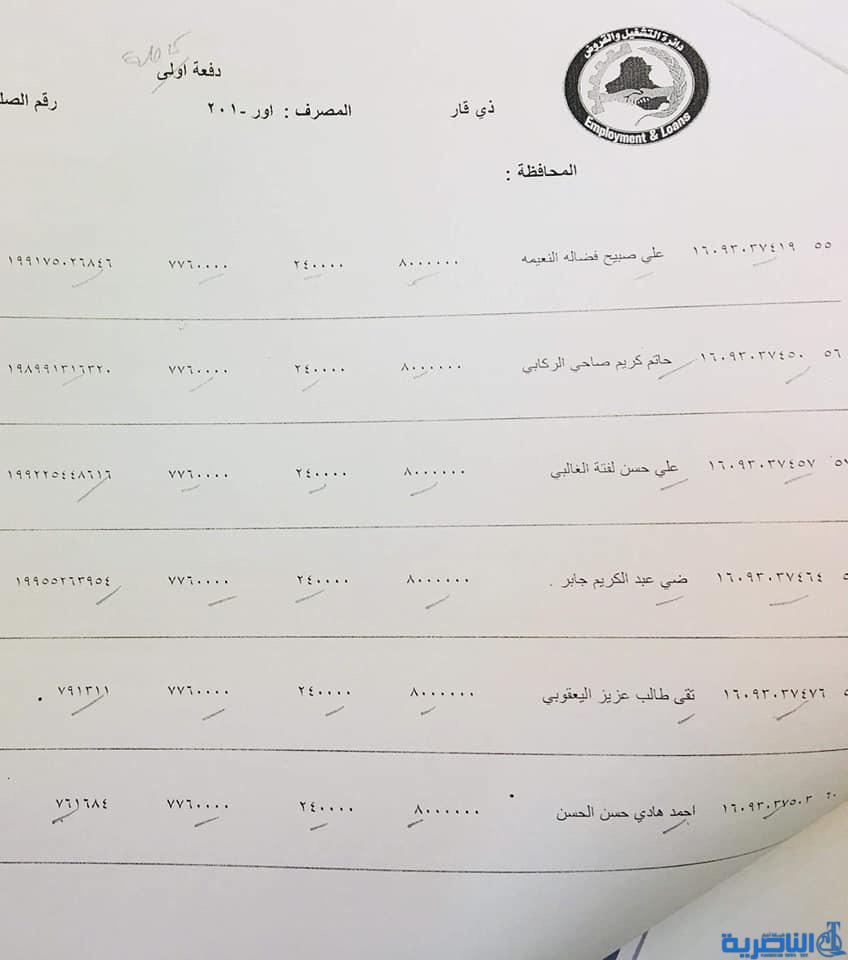 دائرة التشغيل والقروض
Employment & Loans
دفعة اولى
ذي قار المصرف : اور -٢٠١ رقم الصك
المحافظة :
٥٥ ١٦٠٩٣٠٣٧٤١٩ علي صبيح فضاله النعيمه ٨٠٠٠٠٠٠ ٢٤٠٠٠٠ ٧٧٦٠٠٠٠ ١٩٩١٧٥٠٢٦٨٤٦
٥٦ ١٦٠٩٣٠٣٧٤٥٠ حاتم كريم صاحي الركابي ٨٠٠٠٠٠٠ ٢٤٠٠٠٠ ٧٧٦٠٠٠٠ ١٩٨٩٩١٣١٦٣٢٠
٥٧ ١٦٠٩٣٠٣٧٤٥٧ علي حسن لفتة الغالبي ٨٠٠٠٠٠٠ ٢٤٠٠٠٠ ٧٧٦٠٠٠٠ ١٩٩٢٢٥٤٤٨٦١٦
٥ ١٦٠٩٣٠٣٧٤٦٤ ضي عبد الكريم جابر . ٨٠٠٠٠٠٠ ٢٤٠٠٠٠ ٧٧٦٠٠٠٠ ١٩٩٥٥٢٦٣٩٥٤
٥ ١٦٠٩٣٠٣٧٤٧٦ تقى طالب عزيز اليعقوبي ٨٠٠٠٠٠٠ ٢٤٠٠٠٠ ٧٧٦٠٠٠٠ ٧٩١٣١١
٦٠ ١٦٠٩٣٠٣٧٥٠٣ احمد هادي حسن الحسن ٨٠٠٠٠٠٠ ٢٤٠٠٠٠ ٧٧٦٠٠٠٠ ٧٦١٦٨٤
شبكة أخبار
الناصرية